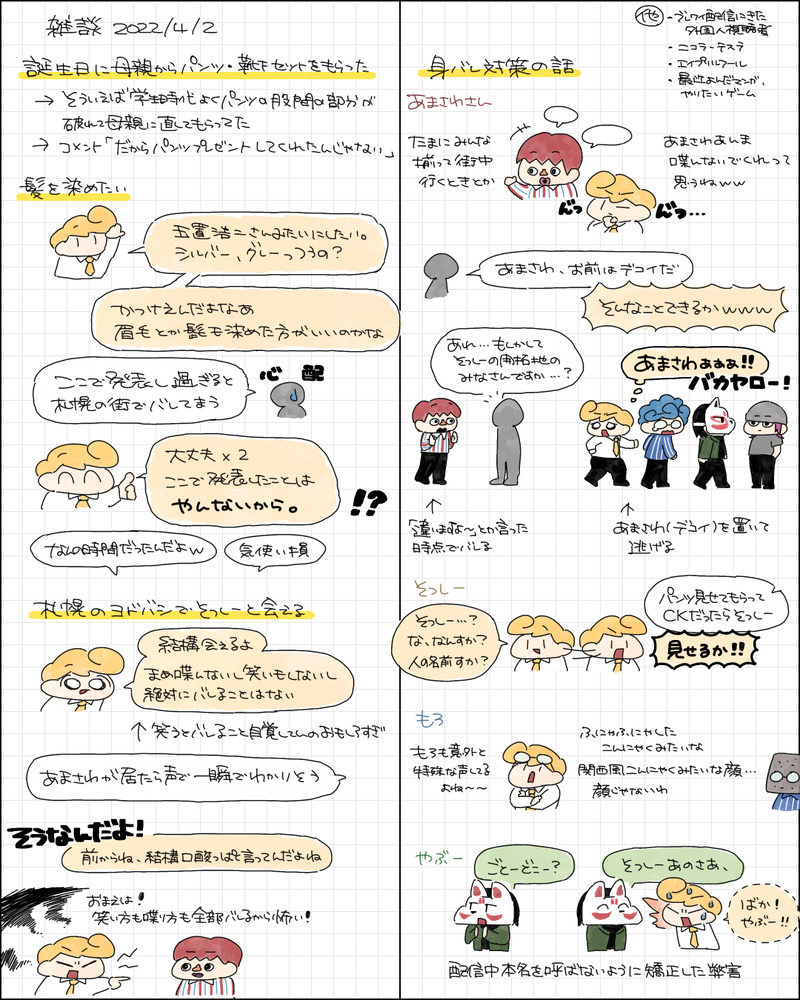 雑談 2022/4/2
誕生日に母親からパンツ・靴下セットをもらった
→ そういえば学生時代よくパンツの股間の部分が
破れて母親に直してもらってた
→ コメント「だからパンツプレゼントしてくれたんじゃない」
髪を染めたい
玉置浩二さんみたいにしたい。
シルバー、グレーっつうの？
かっけえんだよなあ
眉毛とか髪も染めた方がいいのかな
ここで発表し過ぎると
札幌の街でバレてまう
心配
大丈夫×2
ここで発表したことは
やんないから。
!?
なんの時間だったんだよw
気使い損
札幌のヨドバシでそっしーと会える
結構会えるよ
まめ喋んないし笑いもしないし
絶対にバレることはない
↑笑うとバレること自覚してんのおもしろすぎ
あまさわが居たら声で一瞬でわかりそう
そうなんだよ!
前からね、結構口酸っぱく言ってんだよね
おまえは!
笑い方も喋り方も全部バレるから怖い!
他
・ブレワイ配信にきた
外国人視聴者
・ニコラ・テスラ
・エイプリルフール
・最近よんだマンガ、
やりたいゲーム
身バレ対策の話
あまさわさん
たまにみんな
揃って街中
行くときとか
あまさわあんま
喋んないでくれって
思うねww
んっ
んっ…
あまさわ、お前はデコイだ
そんなことできるかwww
あれ…もしかして
そっしーの開拓地の
みなさんですか…？
あまさわぁぁぁ!!
バカヤロー!
↑
「違いまな〜」とか言った
時点でバレる
↑
あまさわ(デコイ)を置いて
逃げる
そっしー
そっしー…？
な、なんすか？
人の名前すか？
パンツ見せてもらって
CKだったらそっしー
見せるか!!
もろ
もろも意外と
特殊な声してる
よね〜〜
ふにゃふにゃした
こんにゃくみたいな
関西風こんにゃくみたいな顔…
顔じゃないわ
やぶー
ごとーどこー？
そっしーあのさあ、
ばか!
やぶー!!
配信中本名を呼ばないように矯正した弊害